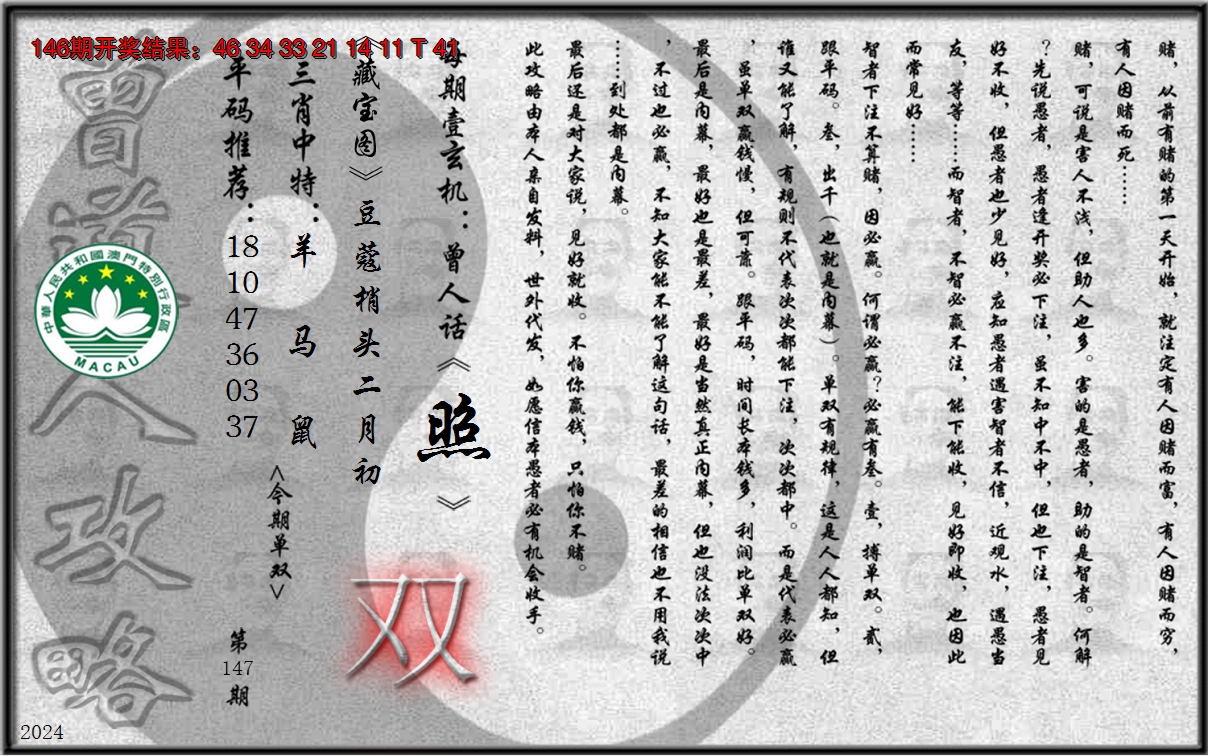 146期开奖结果：46 34 33 21 14 11 T 41
赌，从前有赌的第一天开始，就注定有人因赌而富，有人因赌而穷，
有人因赌而死……
赌，可说是害人不浅，但助人也多。害的是愚者，助的是智者。何解
？先说愚者，愚者逢开奖必下注，虽不知中不中，但也下注，愚者见
好不收，但愚者也少见好，应知愚者遇害智者不信，近观水，遇愚当
友，等等……而智者，不智必赢不注，能下能收，见好即收，也因此
而常见好……
智者下注不算赌，因必赢。何谓必赢？必赢有叁。壹，搏单双。贰，
跟平码。叁，出千（也就是内幕）。单双有规律，这是人人都知，但
谁又能了解，有规则不代表次次都能下注，次次都中。而是代表必赢
，虽单双赢钱慢，但可靠。跟平码，时间长本钱多，利润比单双好。
最后是内幕，最好也是最差，最好是当然真正内幕，但也没法次次中
，不过也必赢，不知大家能不能了解这句话，最差的相信也不用我说
……到处都是内幕。
最后还是对大家说，见好就收。不怕你赢钱，只怕你不赌。
此攻略由本人亲自发料，世外代发，如愿信本愚者必有机会收手。
每期壹玄机：曾人话《照》
《藏宝图》豆蔻梢头二月初
双
三肖中特：羊 马 鼠
<今期单双>
平码推荐：18 10 47 36 03 37
第147期
曾道人攻略
中華人民共和國澳門特別行政區
MACAU
2024